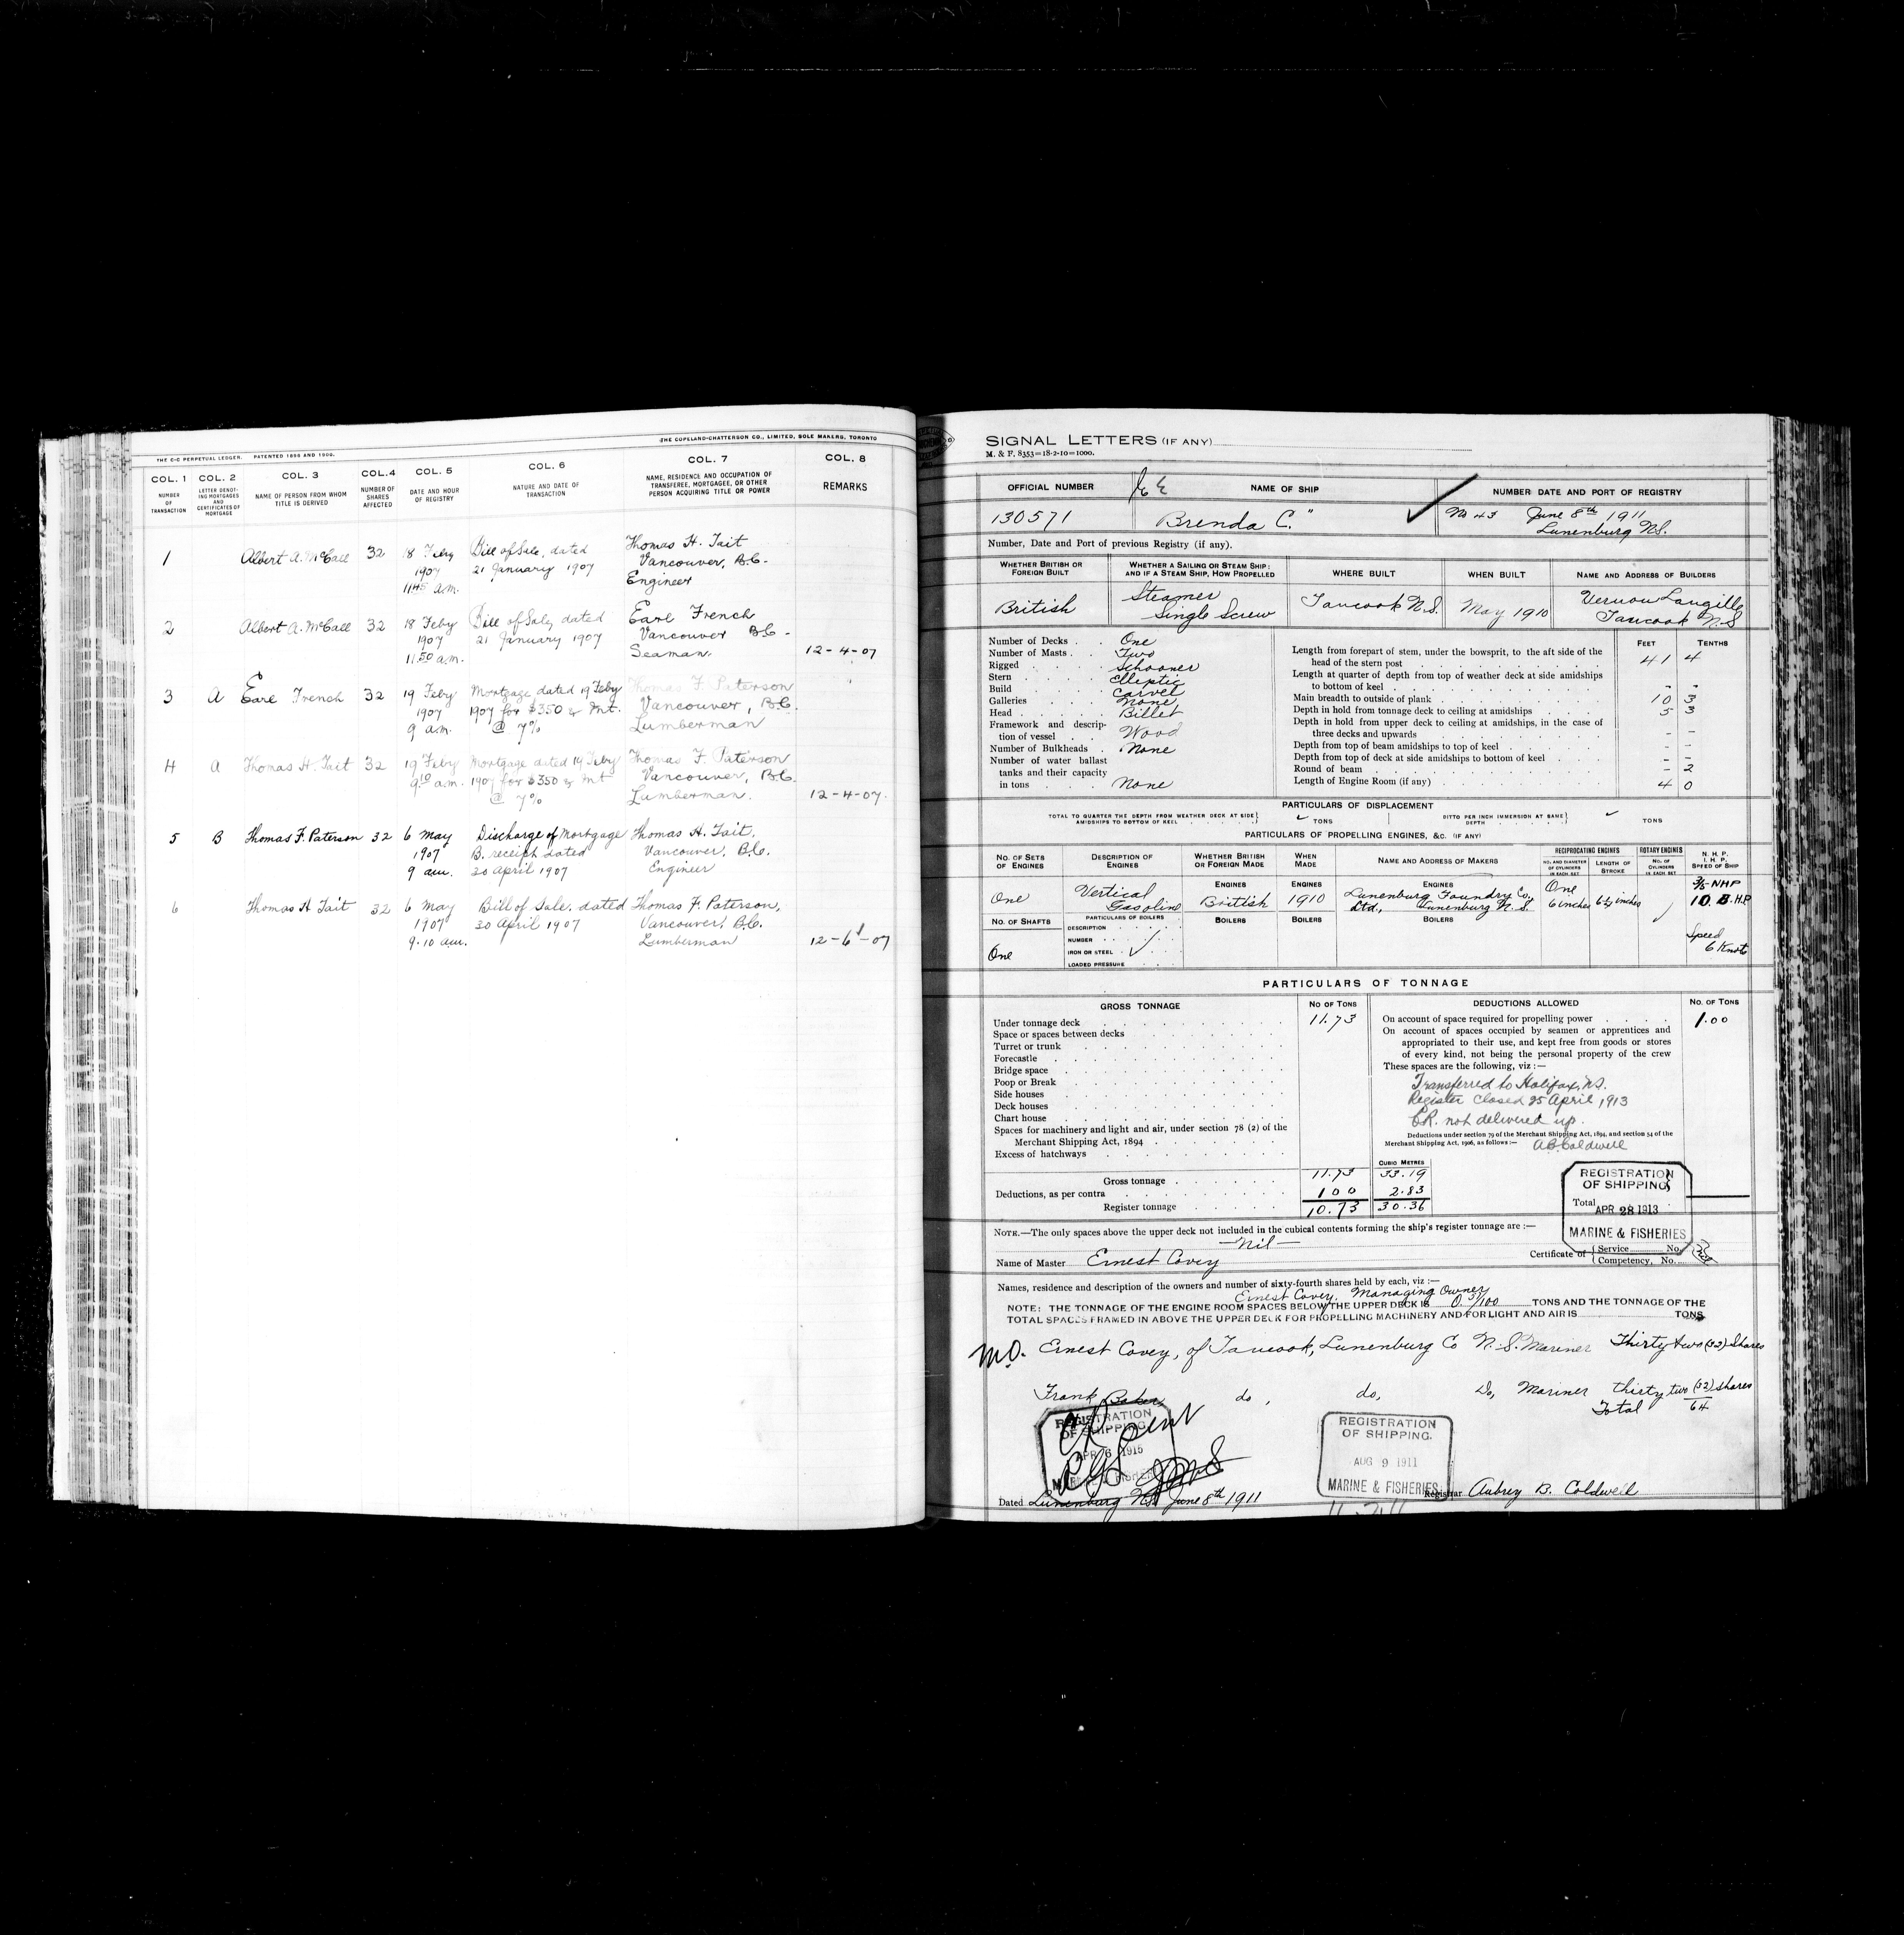 THE COPELAND-CHATTERSON CO., LIMITED, SOLE MAKERS, TORONTO
THE C-C PERPETUAL LEDGER. PATENTED 1896 AND 1902.
COL. 1 COL. 2 COL. 3 COL. 4 COL. 5 COL. 6 COL. 7 COL. 8
NUMBER OF TRANSACTION
LETTER DENOTING MORTGAGES AND CERTIFICATES OF MORTGAGE
NAME OF PERSON FROM WHOM TITLE IS DERIVED
NUMBER OF SHARES AFFECTED
DATE AND HOUR OF REGISTRY
NATURE AND DATE OF TRANSACTION
NAME, RESIDENCE AND OCCUPATION OF TRANSFEREE, MORTGAGEE, OR OTHER PERSON ACQUIRING TITLE OR POWER
REMARKS
1 Albert A. McCall 32 18 Feby Bill of Sale, dated Thomas H. Tait
1907 21 January 1907 Vancouver, B.C.
11.45 a.m. Engineer
2 Albert A. McCall 32 18 Feby Bill of Sale, dated Earl French
1907 21 January 1907 Vancouver B.C.
11.50 a.m. Seaman. 12-4-07
3 A Earl French 32 19 Feby Mortgage dated 19 Feby Thomas F. Paterson
1907 1907 for $350 & Int. Vancouver, B.C.
9 a.m. @ 7% Lumberman
4 A Thomas H. Tait 32 19 Feby Mortgage dated 19 Feby Thomas F. Paterson
9.10 a.m. 1907 for $350 & Int Vancouver, B.C.
@ 7% Lumberman. 12-4-07.
5 B Thomas F. Paterson 32 6 May Discharge of Mortgage Thomas H. Tait,
1907 B. receipt dated Vancouver, B.C.
9 am. 30 April 1907 Engineer
6 Thomas H Tait 32 6 May Bill of Sale, dated Thomas F. Paterson,
1907 30 April 1907 Vancouver, B.C.
9.10 am. Lumberman 12-6-07
SIGNAL LETTERS (IF ANY)
M. & F. 8353=18-2-10=1000.
OFFICIAL NUMBER NAME OF SHIP NUMBER DATE AND PORT OF REGISTRY
130571 Brenda C." No 43 June 8th 1911
Lunenburg N.S.
Number, Date and Port of previous Registry (if any).
WHETHER BRITISH OR FOREIGN BUILT
WHETHER A SAILING OR STEAM SHIP: AND IF A STEAM SHIP, HOW PROPELLED
WHERE BUILT WHEN BUILT NAME AND ADDRESS OF BUILDERS
British Steamer Single Screw Tancook N.S. May 1910 Vernon Langille Tancook N.S
FEET TENTHS
Number of Decks One
Number of Masts Two
Rigged Schooner
Stern Elliptic
Build Carvel
Galleries None
Head Billet
Framework and description of vessel Wood
Number of Bulkheads None
Number of water ballast tanks and their capacity in tons None
Length from forepart of stem, under the bowsprit, to the aft side of the head of the stern post 41 4
Length at quarter of depth from top of weather deck at side amidships to bottom of keel - -
Main breadth to outside of plank 10 3
Depth in hold from tonnage deck to ceiling at amidships 5 3
Depth in hold from upper deck to ceiling at amidships, in the case of three decks and upwards - -
Depth from top of beam amidships to top of keel - -
Depth from top of deck at side amidships to bottom of keel - -
Round of beam - 2
Length of Engine Room (if any) 4 0
PARTICULARS OF DISPLACEMENT
TOTAL TO QUARTER THE DEPTH FROM WEATHER DECK AT SIDE AMIDSHIPS TO BOTTOM OF KEEL TONS DITTO PER INCH IMMERSION AT SAME DEPTH TONS
PARTICULARS OF PROPELLING ENGINES, &C. (IF ANY)
NO. OF SETS OF ENGINES
DESCRIPTION OF ENGINES
WHETHER BRITISH OR FOREIGN MADE
WHEN MADE
NAME AND ADDRESS OF MAKERS
RECIPROCATING ENGINES
NO. AND DIAMETER OF CYLINDERS IN EACH SET
LENGTH OF STROKE
ROTARY ENGINES
NO. OF CYLINDERS IN EACH SET
N. H. P. I. H. P. SPEED OF SHIP
ENGINES ENGINES ENGINES
One Vertical Gasoline British 1910 Lunenburg Foundry Co, Ltd., Lunenburg N.S. One 6 inches 6½ inches NHP
10 B.H.P
NO. OF SHAFTS PARTICULARS OF BOILERS BOILERS BOILERS BOILERS
DESCRIPTION
NUMBER
IRON OR STEEL
LOADED PRESSURE
One
Speed 6 Knots
PARTICULARS OF TONNAGE
GROSS TONNAGE NO OF TONS DEDUCTIONS ALLOWED NO. OF TONS
Under tonnage deck 11.73
Space or spaces between decks
Turret or trunk
Forecastle
Bridge space
Poop or Break
Side houses
Deck houses
Chart house
Spaces for machinery and light and air, under section 78 (2) of the Merchant Shipping Act, 1894
Excess of hatchways
On account of space required for propelling power 1.00
On account of spaces occupied by seamen or apprentices and
appropriated to their use, and kept free from goods or stores
of every kind, not being the personal property of the crew
These spaces are the following, viz :—
Transferred to Halifax, N.S.
Register closed 25 April 1913
C.R. not delivered up.
Deductions under section 79 of the Merchant Shipping Act, 1894, and section 54 of the
Merchant Shipping Act, 1906, as follows :—
A B Coldwell
CUBIC METRES
Gross tonnage 11.73 33.19
Deductions, as per contra 1 00 2.83
Register tonnage 10.73 30.36
REGISTRATION
OF SHIPPING
Total
APR 28 1913
MARINE & FISHERIES
NOTE.—The only spaces above the upper deck not included in the cubical contents forming the ship's register tonnage are :—
—Nil—
Name of Master Ernest Covey Certificate of Service No. Competency, No.
Names, residence and description of the owners and number of sixty-fourth shares held by each, viz :—
Ernest Covey, Managing Owner
NOTE: THE TONNAGE OF THE ENGINE ROOM SPACES BELOW THE UPPER DECK IS 0.3/100 TONS AND THE TONNAGE OF THE
TOTAL SPACES FRAMED IN ABOVE THE UPPER DECK FOR PROPELLING MACHINERY AND FOR LIGHT AND AIR IS TONS
M.O. Ernest Covey, of Tancook, Lunenburg Co N.S. Mariner Thirty two (32) Shares
Frank Baker do, do, Do, Mariner thirty two (32) shares
Total 64
REGISTRATION
OF SHIPPING
APR 6 1915
REGISTRATION
OF SHIPPING.
AUG 9 1911
MARINE & FISHERIES
Dated Lunenburg N.S. June 8th 1911 Registrar Aubrey B. Coldwell